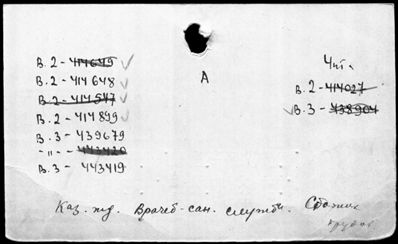 В.2-414649
В.2-414648
В.2-414547
В.2-414899
В.3-439679
-"-"- 443420
В.3-443419
А
Чита
В.2-414027
В.3-438904
Каз. жд. Врачеб-сан. службы. Сборник
трудов